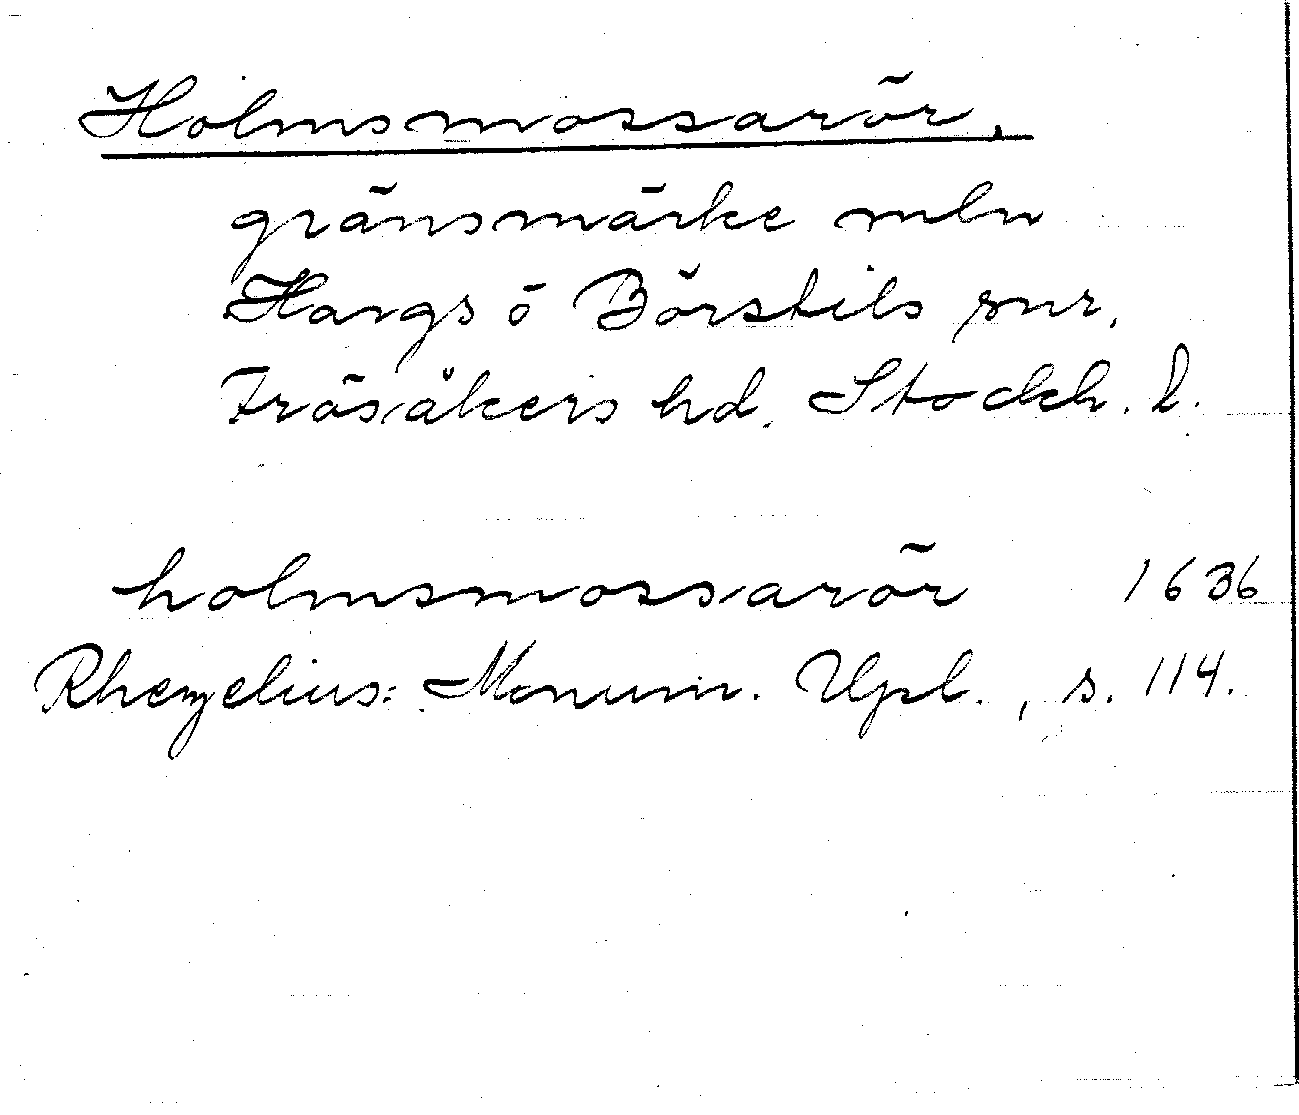 Holmsmossarör,
gränsmärke mln
Hargs o Börstils snr,
Frösåkers hd, Stockh. l.
holmsmossarör 1636
Rhezelius: Monum. Upl., s. 114.